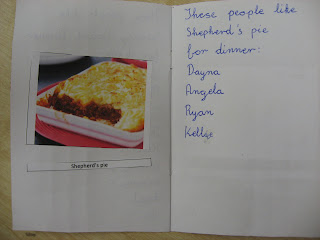 Shepherd's pie
These people like
Shepherd's pie
for dinner:
Dayna
Angela
Ryan
Kellie